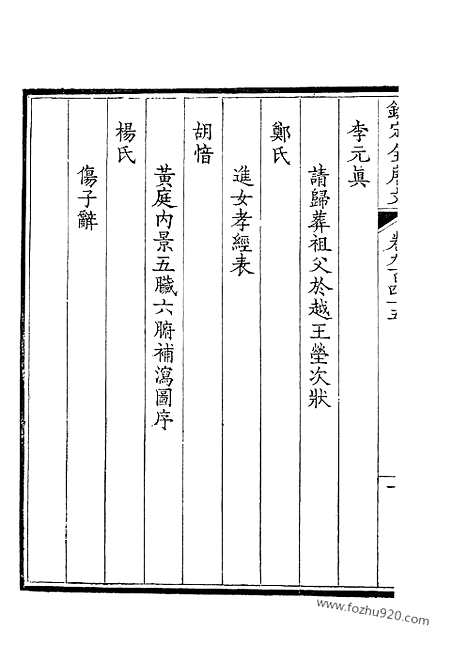 欽定全唐文 卷九百四十五 一
李元眞
請歸葬祖父於越王塋次狀
鄭氏
進女孝經表
胡愔
黃庭內景五臟六腑補瀉圖序
楊氏
傷子辭
www.fozhu920.com